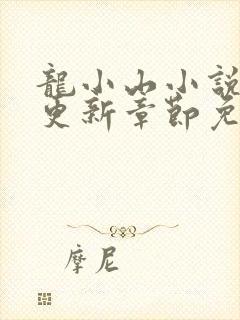 龍小山小說
更新章節免
摩尼